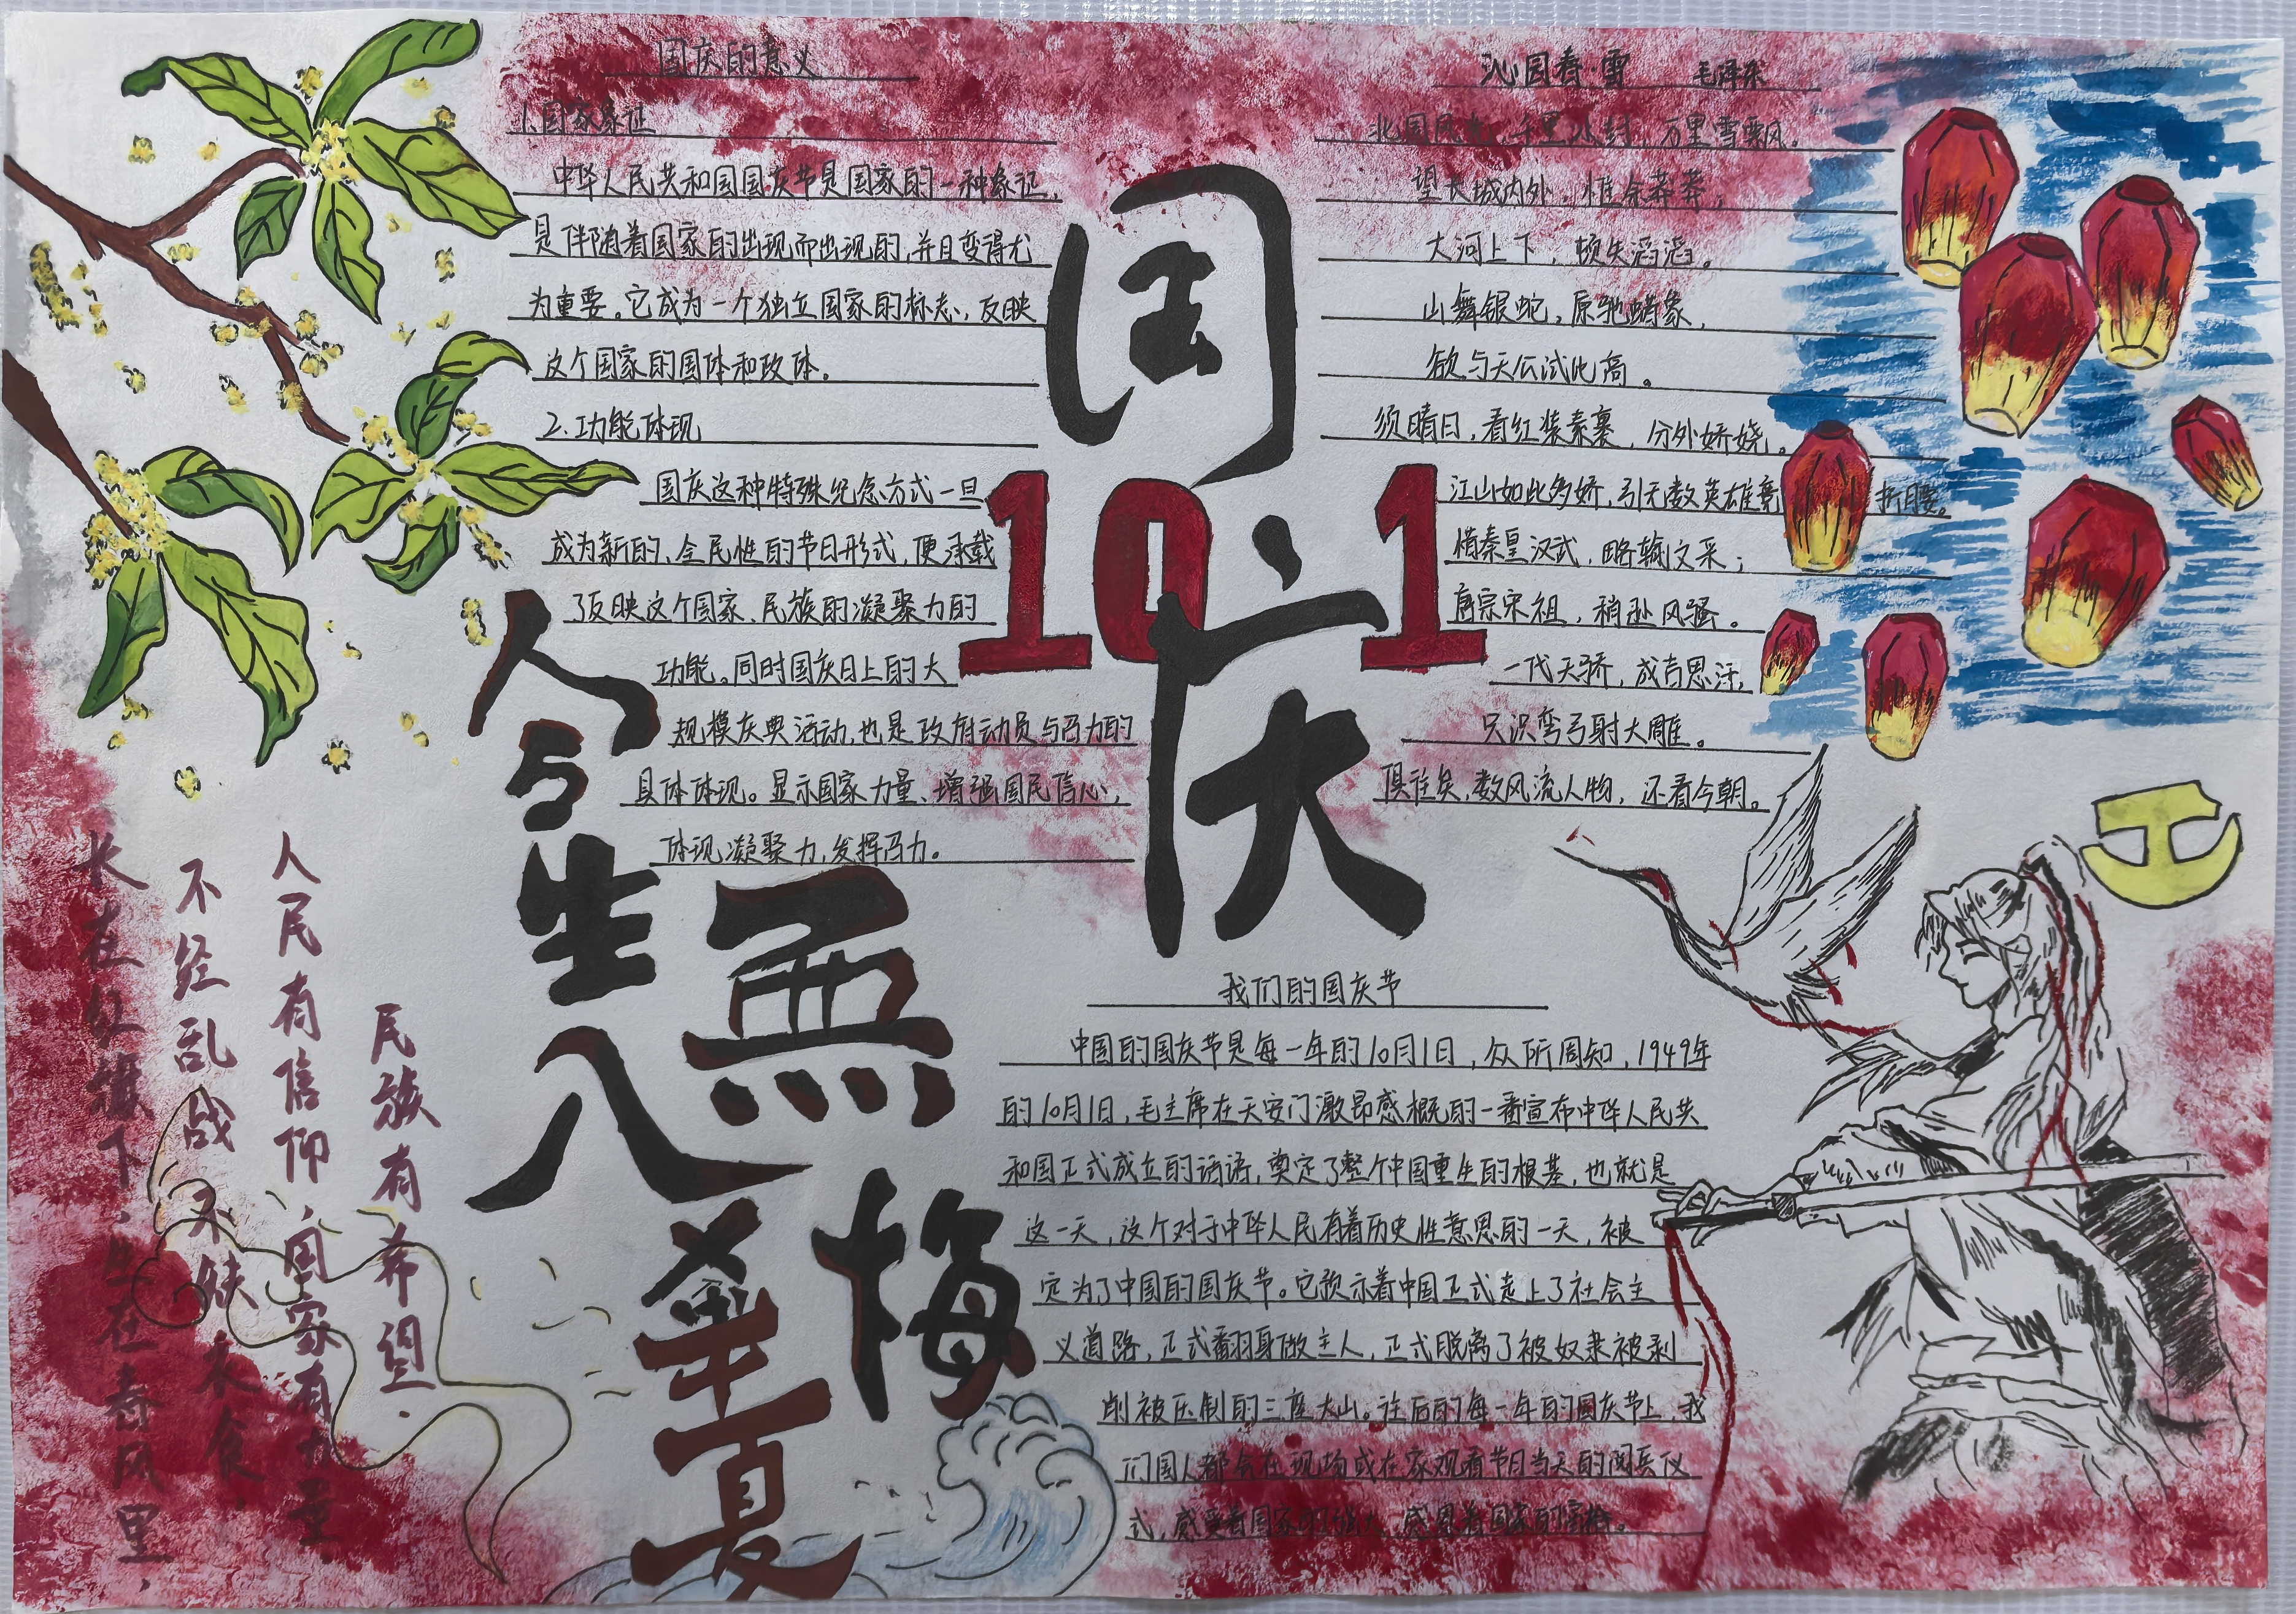 国庆的意义
1.国家象证
中华人民共和国国庆节是国家的一种象证,
是伴随着国家的出现而出现的,并且变得尤
为重要。它成为一个独立国家的标志,反映
这个国家的国体和政体。
2.功能体现
国庆这种特殊纪念方式一旦
成为新的、全民性的节日形式,便承载
了反映这个国家、民族的凝聚力的
功能。同时国庆日上的大
规模庆典活动,也是政府动员与号召力的
具体体现。显示国家力量、增强国民信心,
体现凝聚力,发挥号召力。
国庆
10 1
沁园春·雪 毛泽东
北国风光,千里冰封,万里雪飘。
望长城内外,惟余莽莽;
大河上下,顿失滔滔。
山舞银蛇,原驰蜡象,
欲与天公试比高。
须晴日,看红装素裹,分外娇娆。
江山如此多娇,引无数英雄竞折腰。
惜秦皇汉武,略输文采;
唐宗宋祖,稍逊风骚。
一代天骄,成吉思汗,
只识弯弓射大雕。
俱往矣,数风流人物,还看今朝。
今生入华夏
無悔
我们的国庆节
中国的国庆节是每一年的10月1日,众所周知,1949年
的10月1日,毛主席在天安门激昂感概的一番宣布中华人民共
和国正式成立的话语,奠定了整个中国重生的根基,也就是
这一天,这个对于中华人民有着历史性意思的一天,被
定为了中国的国庆节。它预示着中国正式走上了社会主
义道路,正式翻身做主人,正式脱离了被奴隶被剥
削被压制的三座大山。往后的每一年的国庆节上,我
们国人都会在现场或在家观看节日当天的阅兵仪
式,感受着国家的强大,感恩着国家的富裕。
民族有希望.
人民有信仰,国家有力量.
不经乱战 不缺衣食.
长在红旗下,生在春风里.